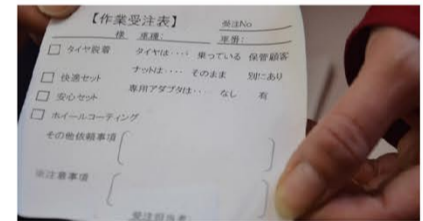 【作業受注表】 受注No
様 車種: 車番:
□ タイヤ脱着 タイヤは‥‥ 乗っている 保管顧客
ナットは‥‥ そのまま 別にあり
□ 快適セット
専用アダプタは‥‥ なし 有
□ 安心セット
□ ホイールコーティング
その他依頼事項
※注意事項
受注担当者